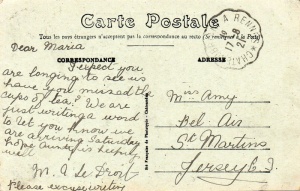 Carte Postale
Tous les pays étrangers n'acceptent pas la correspondance au recto (Se renseigner à la Poste)
CORRESPONDANCE
ADRESSE
Dear Maria
I expect you
are longing to see us
have you missed the
cups of tea? We are
just writing a word
to let you know we
are arriving Saturday
hope Aunty is keeping
well.
M. A Le
Please excuse
Miss Amy
Bel-Air
St Martins
Jersey C.I.
A RENN
17-8